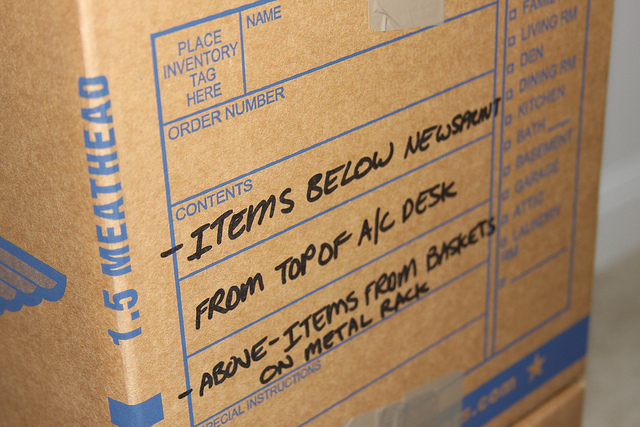 1.5 MEATHEAD
PLACE
INVENTORY
TAG
HERE
NAME
ORDER NUMBER
CONTENTS
-ITEMS BELOW NEWSPRINT
FROM TOP OF A/C DESK
-ABOVE-ITEMS FROM BASKETS
ON METAL RACK
ECIAL INSTRUCTIONS
LIVING RM
DEN
DINING RM
KITCHEN
BATH
BASEMENT
GARAGE
ATTIC
LAUNDRY
RM
.com